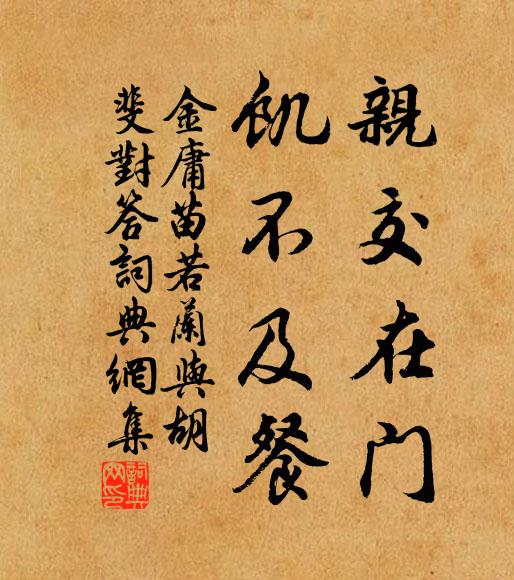 親交在門
飢不及餐
金庸苗若蘭與胡
斐對答詞典網集
詞典
网印